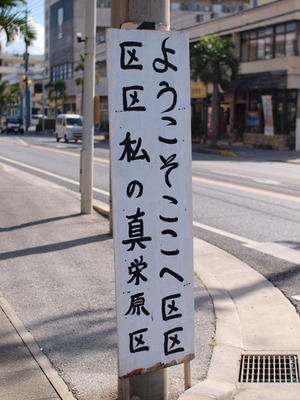 ようこそここへ区区
区区私の真栄原区